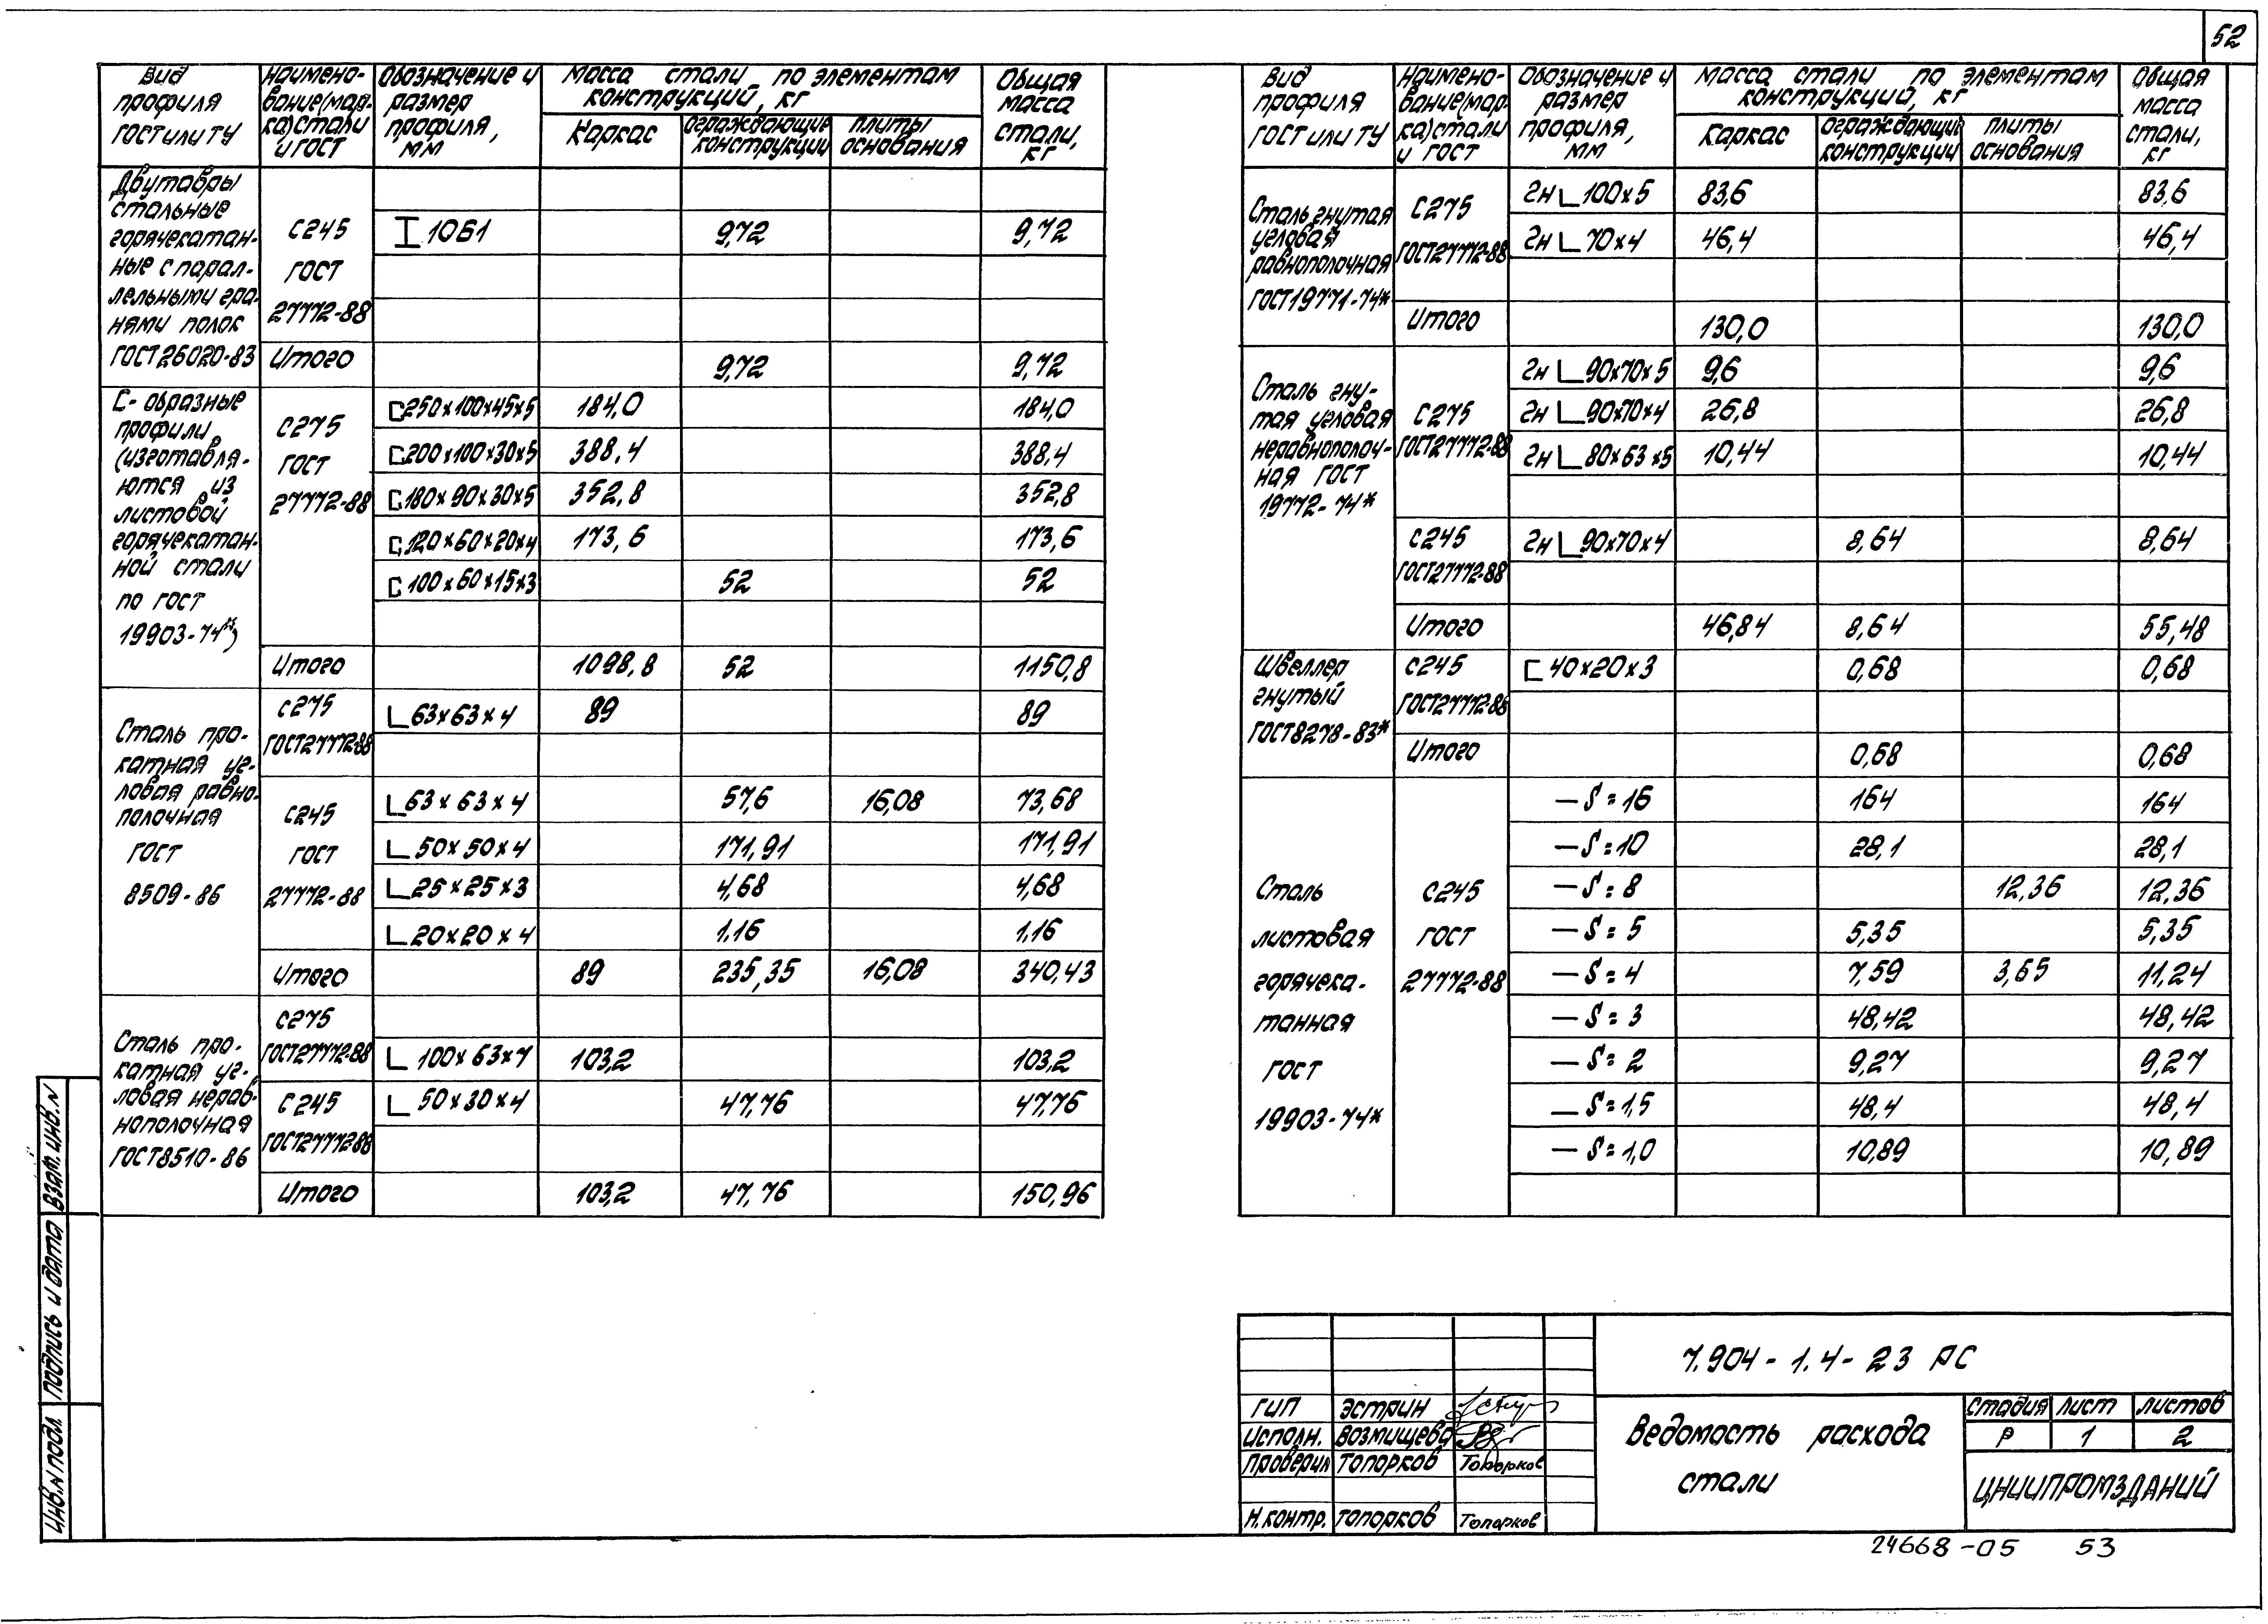 52
Вид профиля ГОСТ или ТУ
Наименование (марка) стали и ГОСТ
Обозначение и размер профиля, мм
Масса стали по элементам конструкций, кг
Каркас
Ограждающие конструкции
Плиты основания
Общая масса стали, кг
Двутавры
стальные
горячекатан-
ные с парал-
лельными гра-
нями полок
ГОСТ 26020-83
С245
ГОСТ
27772-88
I 10Б1 9,72 9,72
Итого 9,72 9,72
С-образные
профили
(изготавля-
ются из
листовой
горячекатан-
ной стали
по ГОСТ
19903-74*)
С275
ГОСТ
27772-88
[250×100×45×5 184,0 184,0
[200×100×30×5 388,4 388,4
[180×90×30×5 352,8 352,8
[120×60×20×4 173,6 173,6
[100×60×15×3 52 52
Итого 1098,8 52 1150,8
Сталь про-
катная уг-
ловая равно-
полочная
ГОСТ
8509-86
С275
ГОСТ27772-88
L 63×63×4 89 89
С245
ГОСТ
27772-88
L 63×63×4 57,6 16,08 73,68
L 50×50×4 171,91 171,91
L 25×25×3 4,68 4,68
L 20×20×4 1,16 1,16
Итого 89 235,35 16,08 340,43
Сталь про-
катная уг-
ловая нерав-
нополочная
ГОСТ8510-86
С275
ГОСТ27772-88
L 100×63×7 103,2 103,2
С245
ГОСТ27772-88
L 50×30×4 47,76 47,76
Итого 103,2 47,76 150,96
Вид профиля ГОСТ или ТУ
Наименование (марка) стали и ГОСТ
Обозначение и размер профиля, мм
Масса стали по элементам конструкций, кг
Каркас
Ограждающие конструкции
Плиты основания
Общая масса стали, кг
Сталь гнутая
угловая
равнополочная
ГОСТ19771-74*
С275
ГОСТ27772-88
Гн L 100×5 83,6 83,6
Гн L 70×4 46,4 46,4
Итого 130,0 130,0
Сталь гну-
тая угловая
неравнополоч-
ная ГОСТ
19772-74*
С275
ГОСТ27772-88
Гн L 90×70×5 9,6 9,6
Гн L 90×70×4 26,8 26,8
Гн L 80×63×5 10,44 10,44
С245
ГОСТ27772-88
Гн L 90×70×4 8,64 8,64
Итого 46,84 8,64 55,48
Швеллер
гнутый
ГОСТ8278-83*
С245
ГОСТ27772-88
[ 40×20×3 0,68 0,68
Итого 0,68 0,68
Сталь
листовая
горячека-
танная
ГОСТ
19903-74*
С245
ГОСТ
27772-88
— S=16 164 164
— S=10 28,1 28,1
— S=8 12,36 12,36
— S=5 5,35 5,35
— S=4 7,59 3,65 11,24
— S=3 48,42 48,42
— S=2 9,27 9,27
— S=1,5 48,4 48,4
— S=1,0 10,89 10,89
Инв.N подл. Подпись и дата Взам. инв.N
7.904-1.4-23 РС
ГИП Эстрин
Исполн. Возмищева
Проверил Топорков Топорков
Н.контр. Топорков Топорков
Ведомость расхода
стали
Стадия Лист Листов
Р 1 2
ЦНИИПРОМЗДАНИЙ
24668-05 53